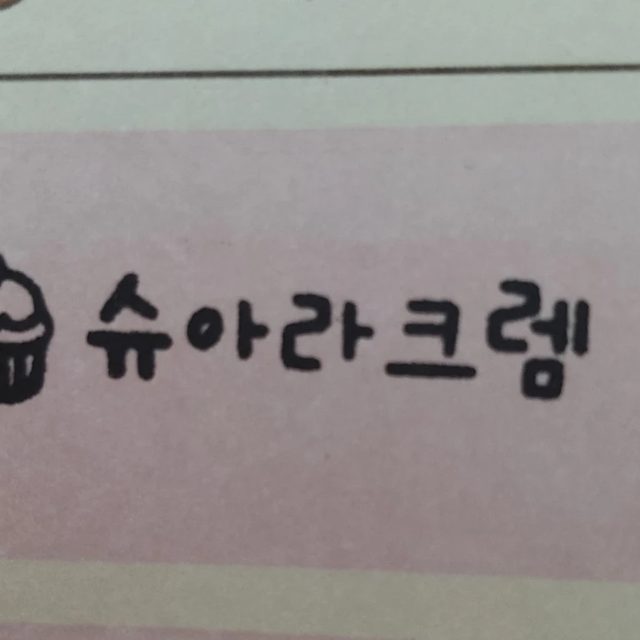 슈아라크렘